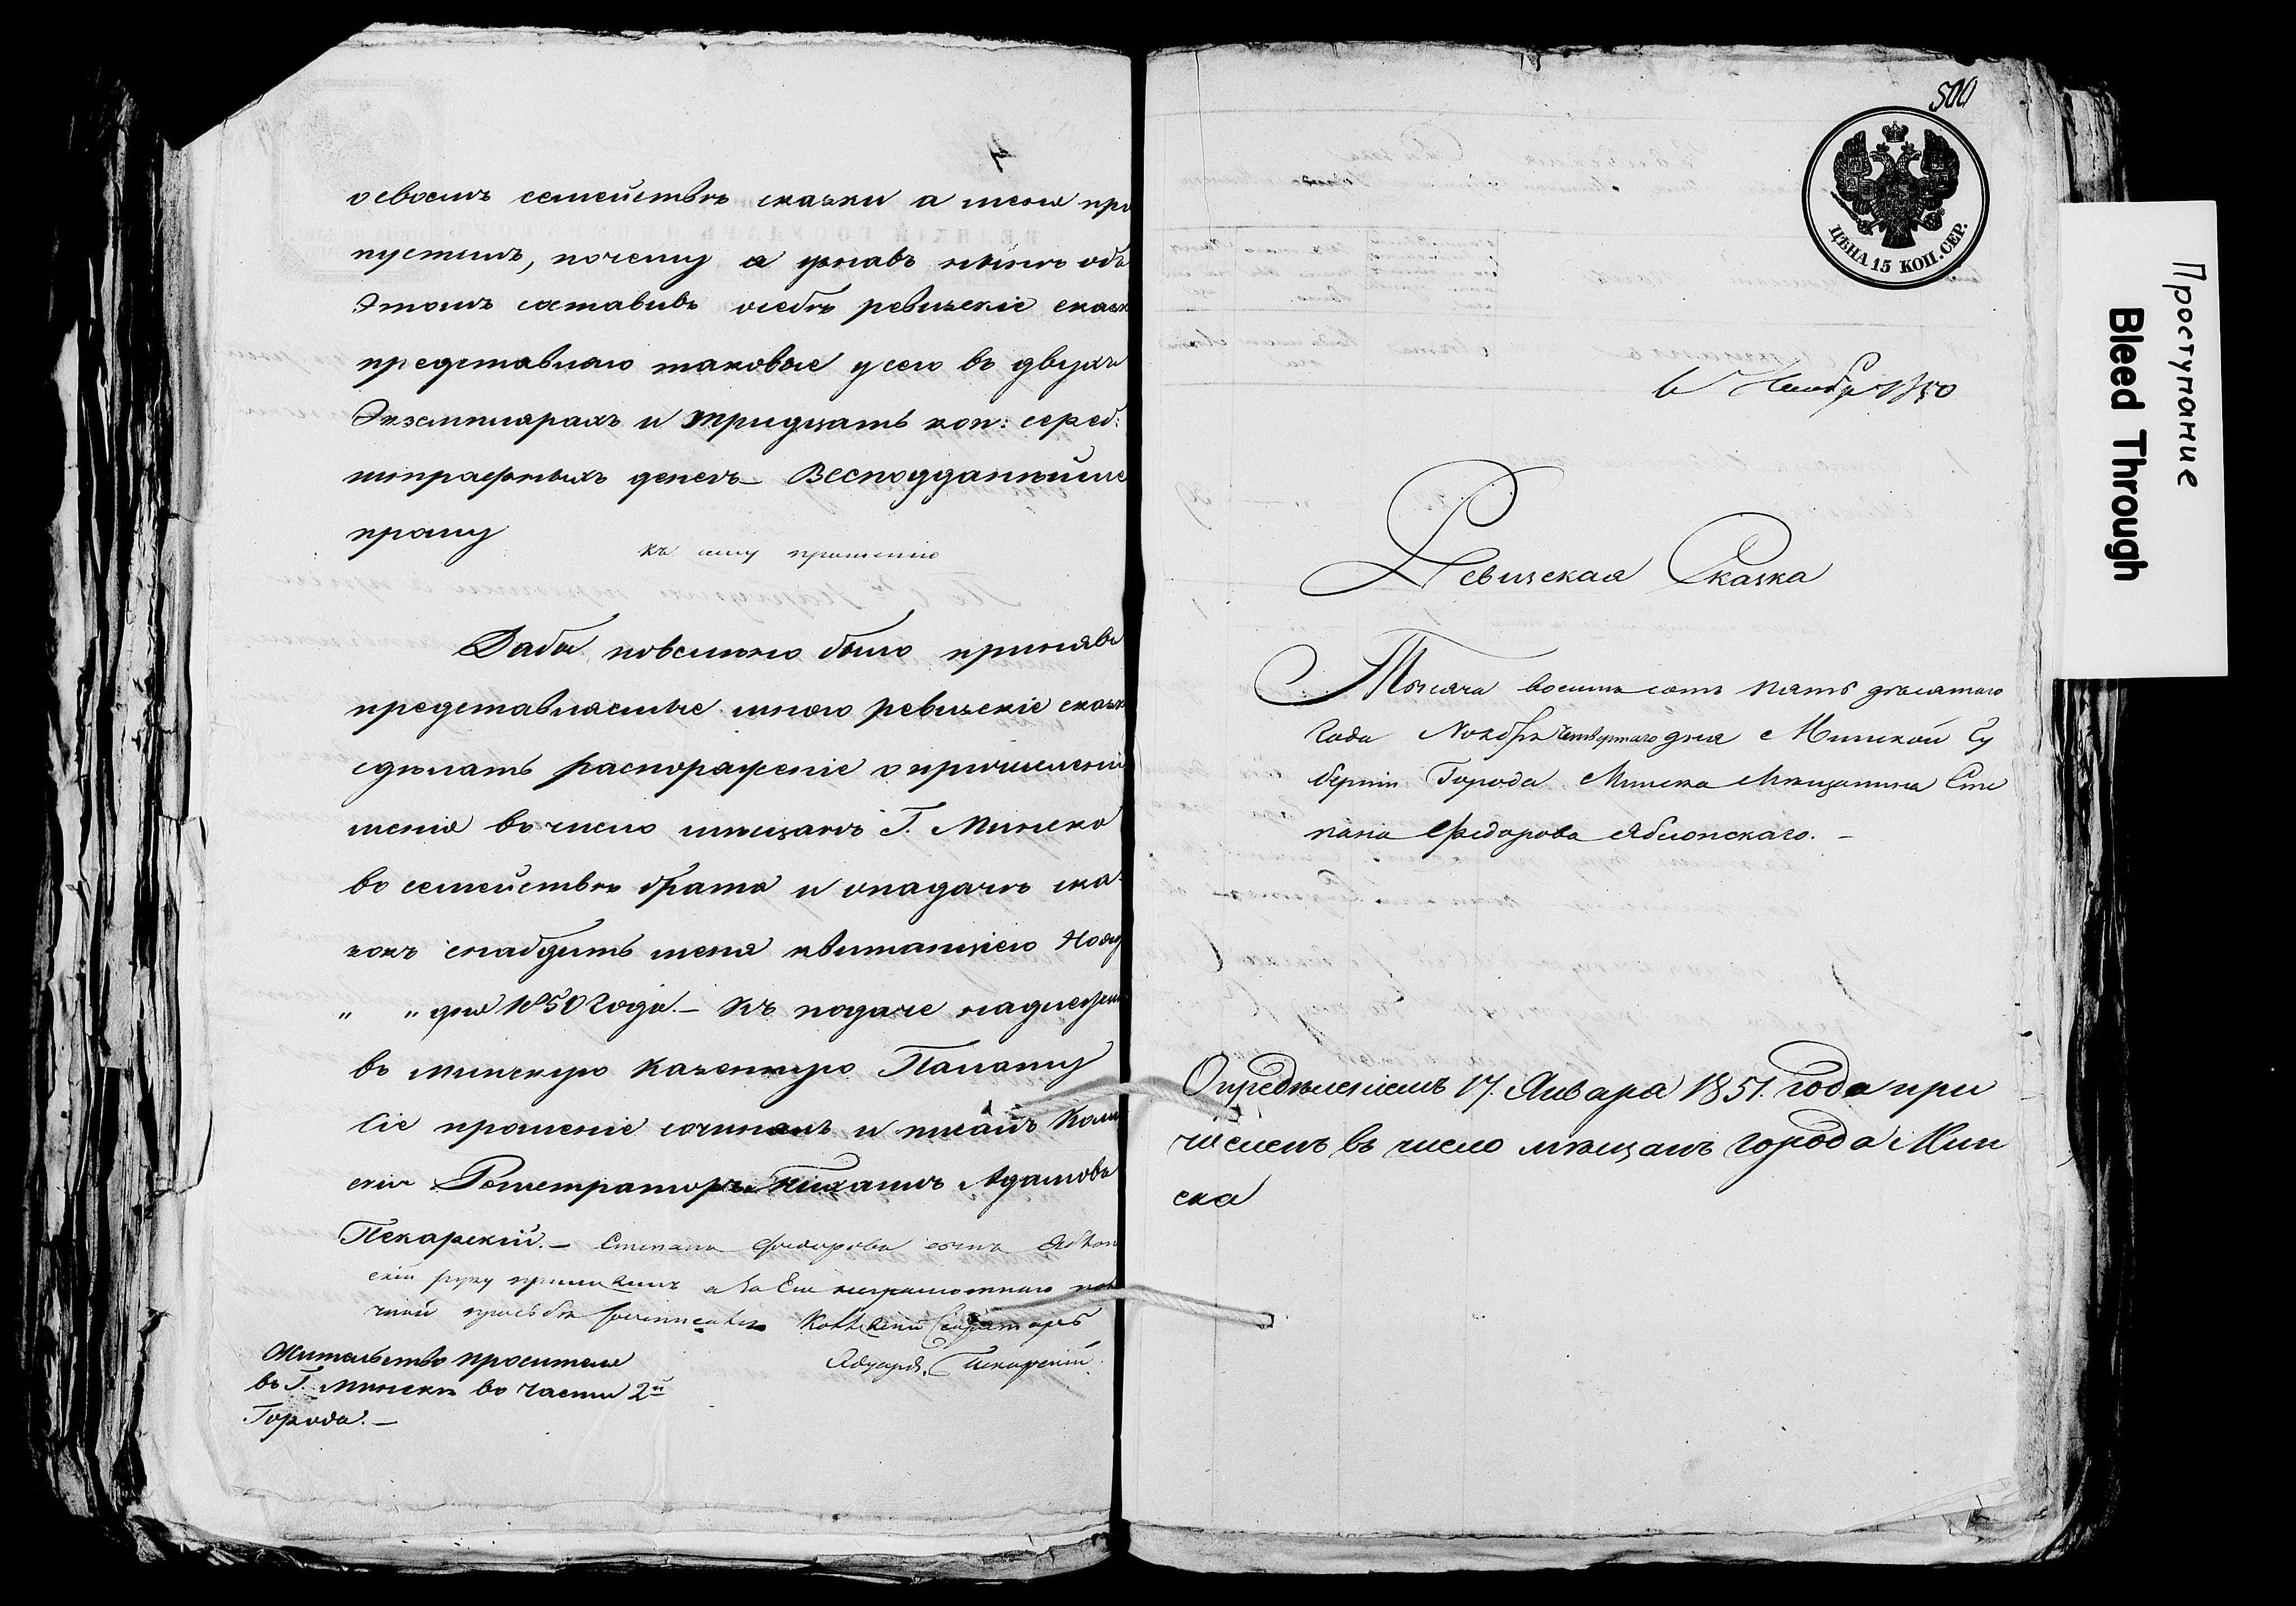 4
о своемъ семействѣ сказки а меня про
пустилъ, почему я узнавъ нынѣ объ
этомъ составивъ особѣ ревизскіе сказк
представляю таковые у сего въ двухъ
Экземплярахъ и тридцать коп: сереб:
штрафныхъ денегъ — Всеподданнѣйше
прошу
къ сему прошенію
Дабы повелѣно было принявъ
представляемые мною ревизскіе сказк
сдѣлать распоряженіе о причисленіи
меня въ число мѣщанъ Г. Минска
въ семействѣ брата и о подачѣ ска-
зокъ снабдить меня квитанціею Нояб
„ „ дня 1850 года. — Къ подаче надлежи
въ Минскую Казенную Палату
Сіе прошеніе сочинялъ и писалъ Колл
скій Регистраторъ Адамовъ
Пекарскій. — Степанъ Федоровъ сынъ Яблон
скій руку приложилъ а за Его неграмотнаго
просьбѣ росписался Коллежскій Секретарь
Эдуардъ Пекарскій.
Жительство просителя
въ Г. Минскѣ во части 2й
Города. —
500
ЦѢНА 15 КОП. СЕР.
Ноябр 1850
Ревизская Сказка
Тысяча восемь сотъ пять десятаго
года Ноября Четвертаго дня Минской Гу
берніи Города Минска Мѣщанина Сте
пана Федорова Яблонскаго. —
Опредѣленіемъ 17. Января 1851. года при
численъ въ число мѣщанъ города Мин
ска
Проступание
Bleed Through